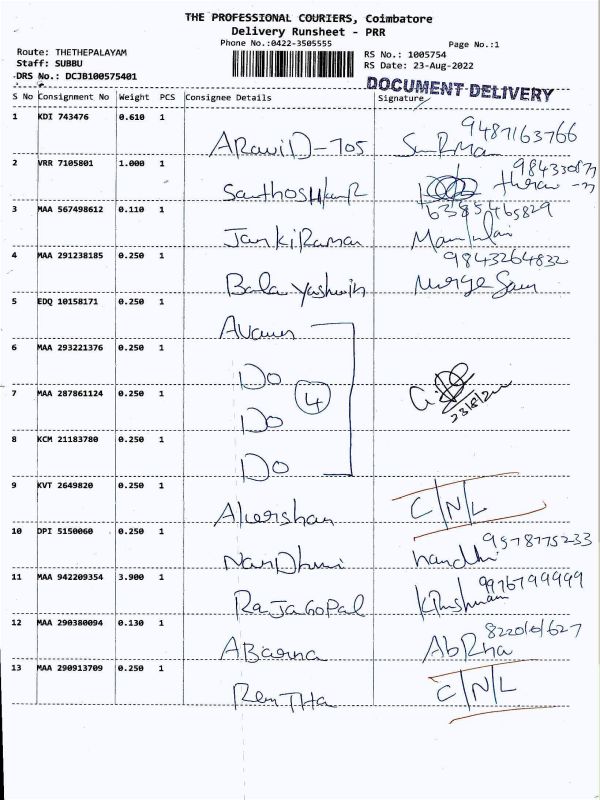 THE PROFESSIONAL COURIERS, Coimbatore
Delivery Runsheet - PRR
Phone No.:0422-3505555
Page No.:1
Route: THETHEPALAYAM
Staff: SUBBU
DRS No.: DCJB100575401
RS No.: 1005754
RS Date: 23-Aug-2022
DOCUMENT DELIVERY
S No Consignment No Weight PCS Consignee Details Signature
1 KDI 743476 0.610 1
9487163766
2 VRR 7105801 1.000 1
3 MAA 567498612 0.110 1
6385465829
JankiRaman
4 MAA 291238185 0.250 1
9843264832
Bala Yashwin
5 EDQ 10158171 0.250 1
6 MAA 293221376 0.250 1
Do
7 MAA 287861124 0.250 1
4
23/8/22
Do
8 KCM 21183780 0.250 1
Do
9 KVT 2649820 0.250 1
Akershan C/N/L
10 DPI 5150060 0.250 1
9578775233
nandhi
11 MAA 942209354 3.900 1
9976799999
RajaGOPAL
12 MAA 290380094 0.130 1
ABarna
13 MAA 290913709 0.250 1
C/N/L